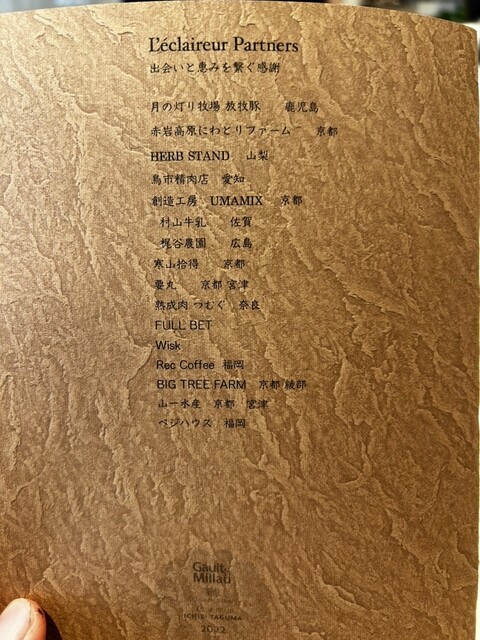 L'éclaireur Partners
出会いと恵みを繋ぐ感謝
月の灯り牧場 放牧豚 鹿児島
赤岩高原にわとりファーム 京都
HERB STAND 山梨
鳥市精肉店 愛知
創造工房 UMAMIX 京都
村山牛乳 佐賀
梶谷農園 広島
寒山拾得 京都
要丸 京都 宮津
熟成肉 つむぐ 奈良
FULL BET
Wisk
Rec Coffee 福岡
BIG TREE FARM 京都 綾部
山一水産 京都 宮津
ベジハウス 福岡
Gault&
Millau
TAGUMA
2022